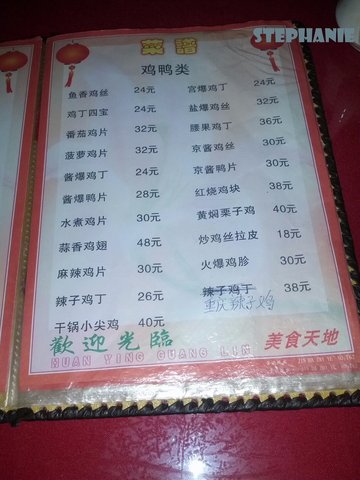 STEPHANIE
菜譜
鸡鸭类
鱼香鸡丝 24元 宫爆鸡丁 24元
鸡丁四宝 24元 盐爆鸡丝 32元
番茄鸡片 32元 腰果鸡丁 36元
菠萝鸡片 32元 京酱鸡丝 30元
酱爆鸡丁 24元 京酱鸭片 30元
酱爆鸭片 28元 红烧鸡块 38元
水煮鸡片 30元 黄焖栗子鸡 40元
蒜香鸡翅 48元 炒鸡丝拉皮 18元
麻辣鸡片 30元 火爆鸡胗 30元
辣子鸡丁 26元 辣子鸡丁 38元
重庆辣子鸡
干锅小尖鸡 40元
歡迎光臨
HUAN YING GUANG LIN
美食天地